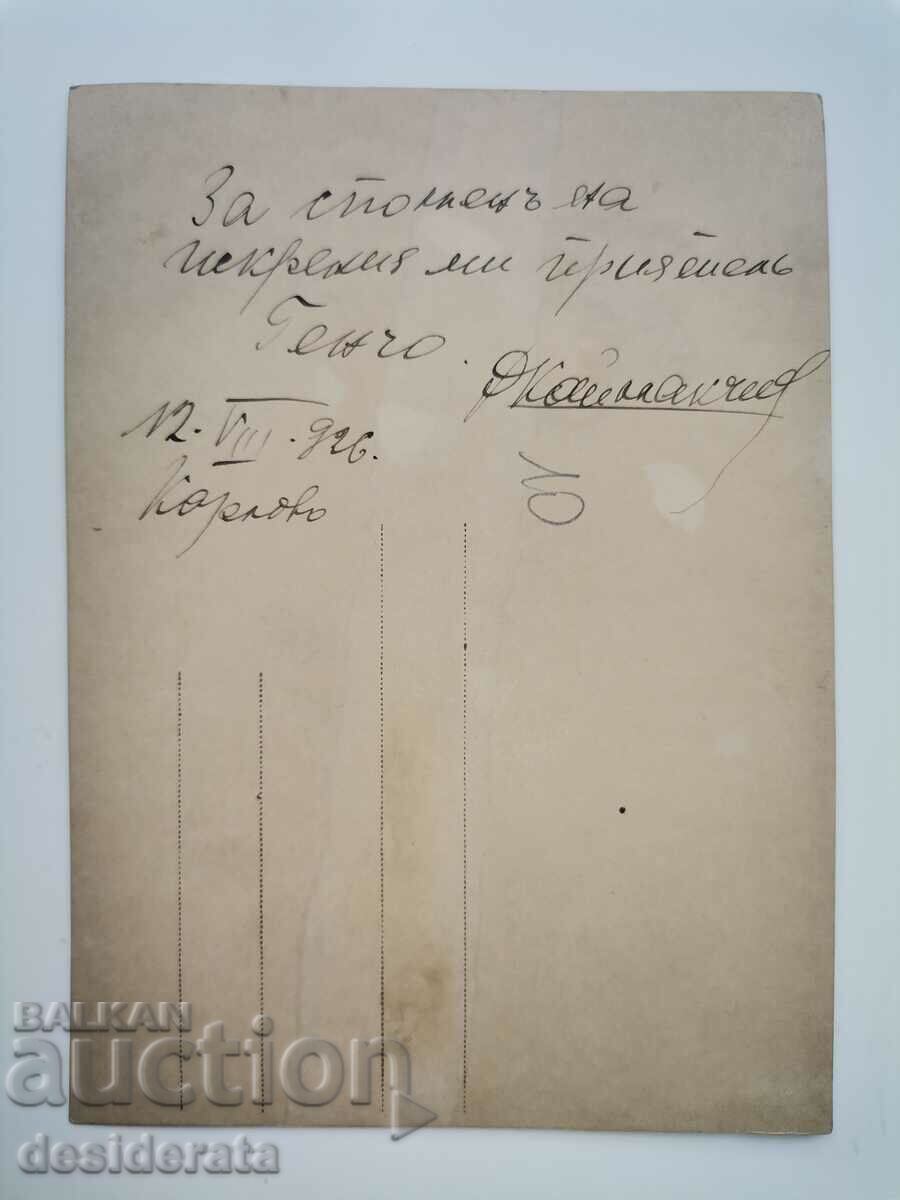 За споменъ на
искрения ми приятель
Генчо.
ДКаймакчиев
12. VIII. 926.
Карлово
BALKAN
auction
desiderata